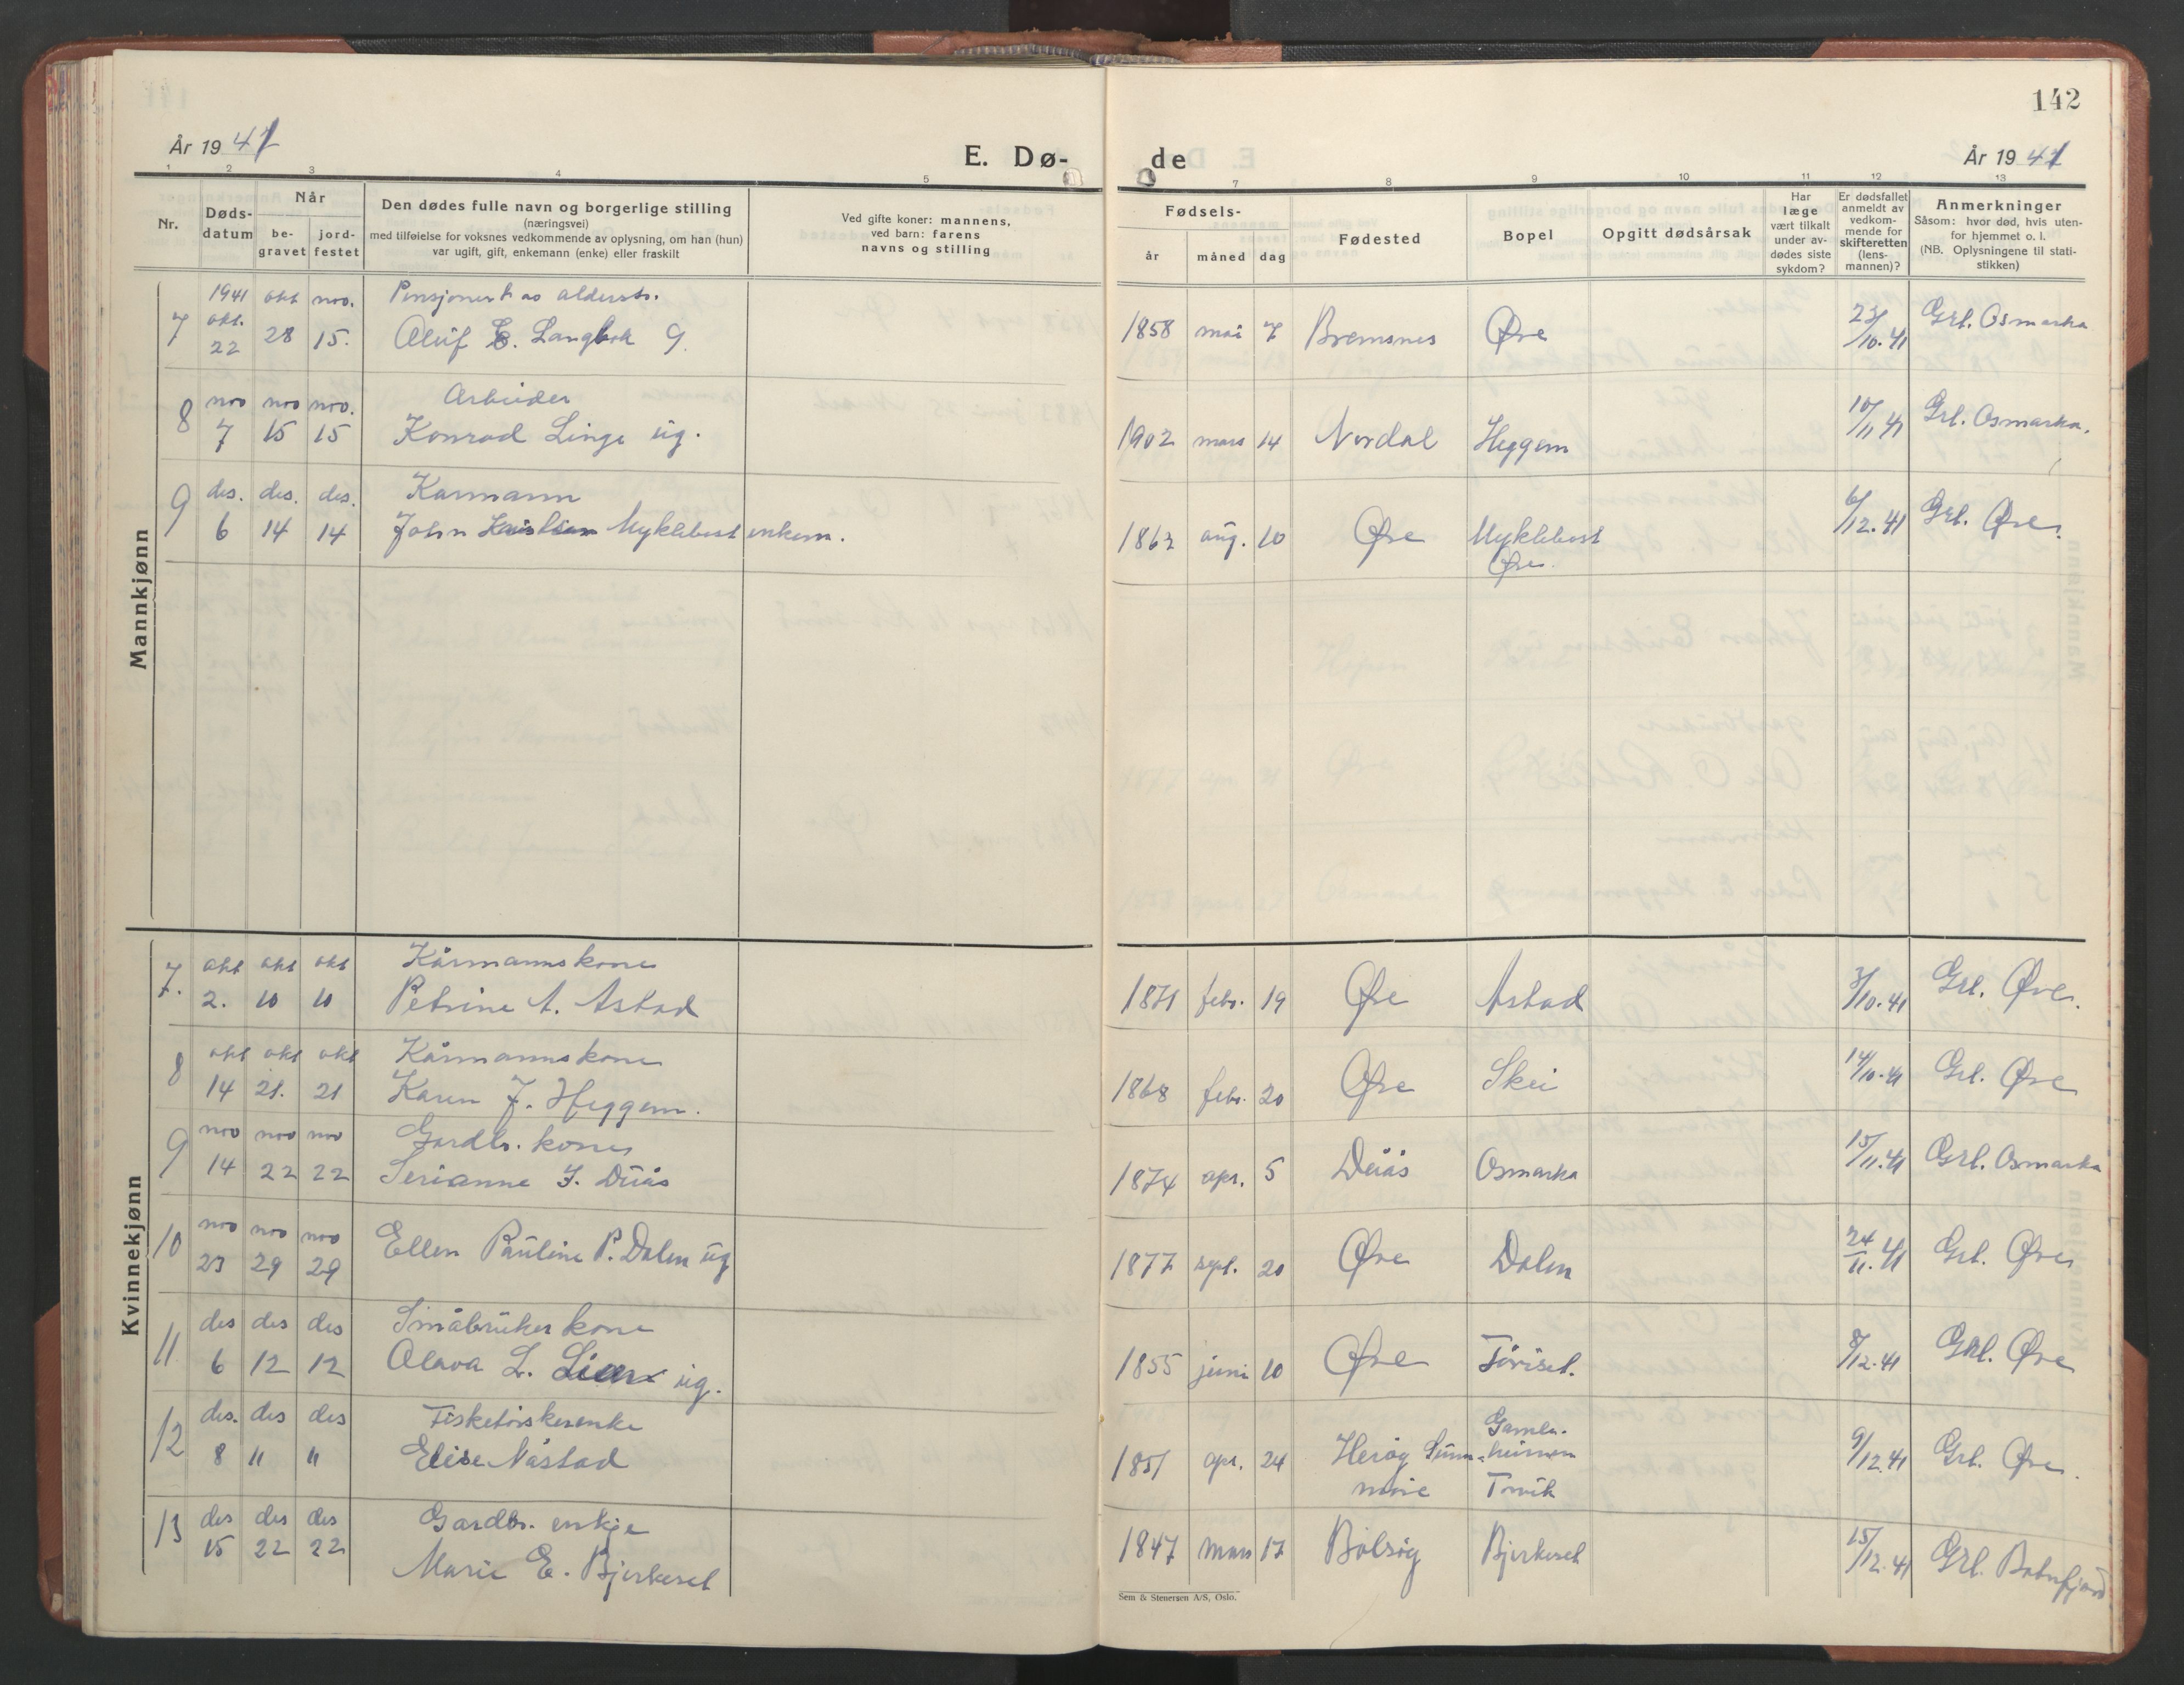 142
År 1941
E. Dø-
de
År 1941
1 2 3 4 5 7 8 9 10 11 12 13
Nr.
Døds-
datum
Når
be-
gravet
jord-
festet
Den dødes fulle navn og borgerlige stilling
(næringsvei)
med tilføielse for voksnes vedkommende av oplysning, om han (hun)
var ugift, gift, enkemann (enke) eller fraskilt
Ved gifte koner: mannens,
ved barn: farens
navns og stilling
Fødsels-
år måned dag
Fødested
Bopel
Opgitt dødsårsak
Har
læge
vært tilkalt
under av-
dødes siste
sykdom?
Er dødsfallet
anmeldt av
vedkom-
mende for
skifteretten
(lens-
mannen)?
Anmerkninger
Såsom: hvor død, hvis uten-
for hjemmet o. l.
(NB. Oplysningene til stati-
stikken)
Mannkjønn
1941 okt nov. Pensjonert av alderstr.
7 okt. 22 28 15. Oluf Langbak G. 1858 mai 7 Bremsnes Øre 23/10.41 Grl. Osmarka
nov nov nov. Arbeider
8 7 15 15 Konrad Linge ug. 1902 mars 14 Nordal Heggem 10/11 41 Grl. Osmarka.
des. des. des. Karmann
9 6 14 14 John Myklebost enkem. 1862 aug. 10 Øre Myklebost 6/12.41 Grl. Øre.
Øre.
Kvinnekjønn
okt okt okt Kårmannskone
7. 2. 10 10 Petrine A. Astad 1871 febr. 19 Øre Astad 3/10.41 Grl. Øre.
okt okt okt Kårmannskone
8 14 21. 21 Karen J. Heggem. 1868 febr. 20 Øre Skei 14/10.41 Grl. Øre
nov nov nov Gardbr. kone
9 14 22 22 Serianne J. Duås 1874 apr. 5 Duås Osmarka 15/11.41 Grl. Osmarka
nov nov nov
10 23 29 29 Ellen Pauline P. Dalen ug 1877 sept. 20 Øre Dalen 24/11.41 Grl. Øre
des des des Småbruker kone
11 6 12 12 Olava L. Lien ug. 1855 juni 10 Øre Toriset. 8/12.41 Grl. Øre
des. des des Fisketørskerenke Gamle-
12 8 11 11 Elise Nåstad 1851 apr. 24 Herøy Sunn- heimen 9/12.41 Grl. Øre.
møre Torvik
des des des Gardbr. enkje
13 15 22 22 Marie E. Bjerkeset 1847 mars 17 Bolsøy Bjerkeset 15/12.41 Grl. Batnfjord
Sem & Stenersen A/S, Oslo.